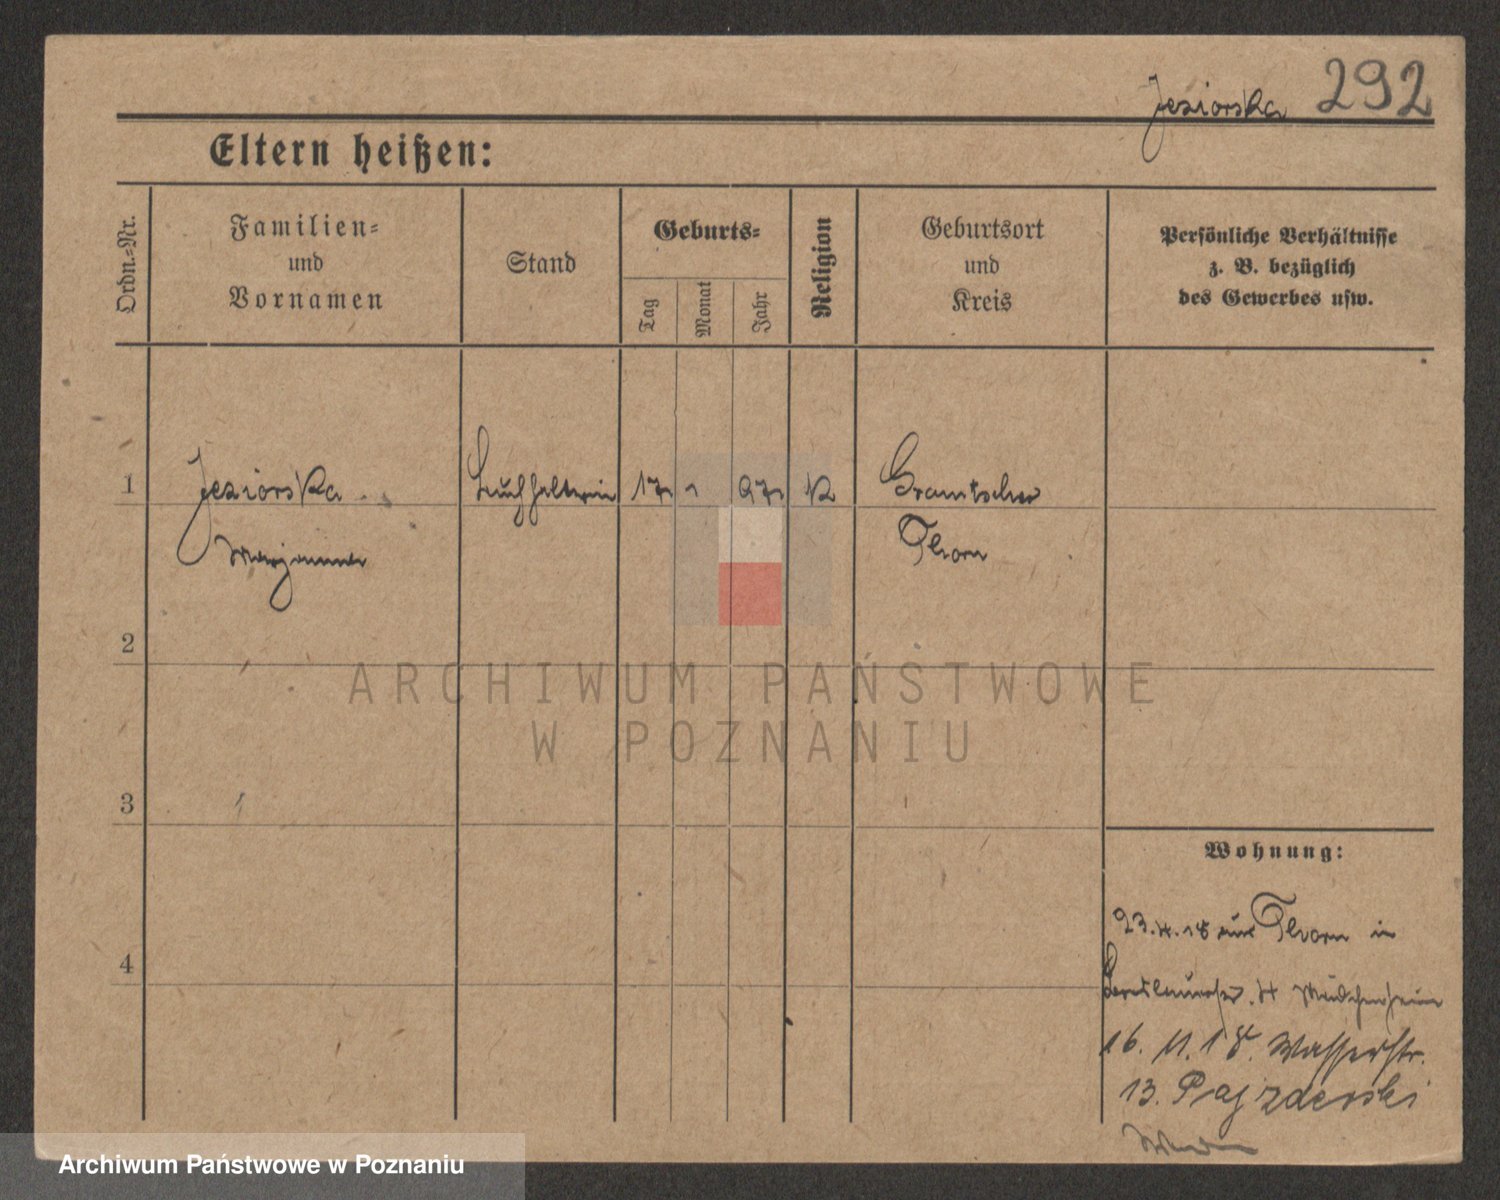 Jeziorska 292
Eltern heißen:
Ordn.-Nr.
Familien-
und
Vornamen
Stand
Geburts-
Tag
Monat
Jahr
Religion
Geburtsort
und
Kreis
Persönliche Verhältnisse
z. B. bezüglich
des Gewerbes usw.
1
Jeziorska
Marjanna
Buchhalterin
17
1
97
K
Gramtschen
Thorn
2
3
4
Wohnung:
23.4.18 aus Thorn in
4 Mädchenheim
16. 11. 18. Wasserstr.
13. Pajzderski
ARCHIWUM PAŃSTWOWE
W POZNANIU
Archiwum Państwowe w Poznaniu